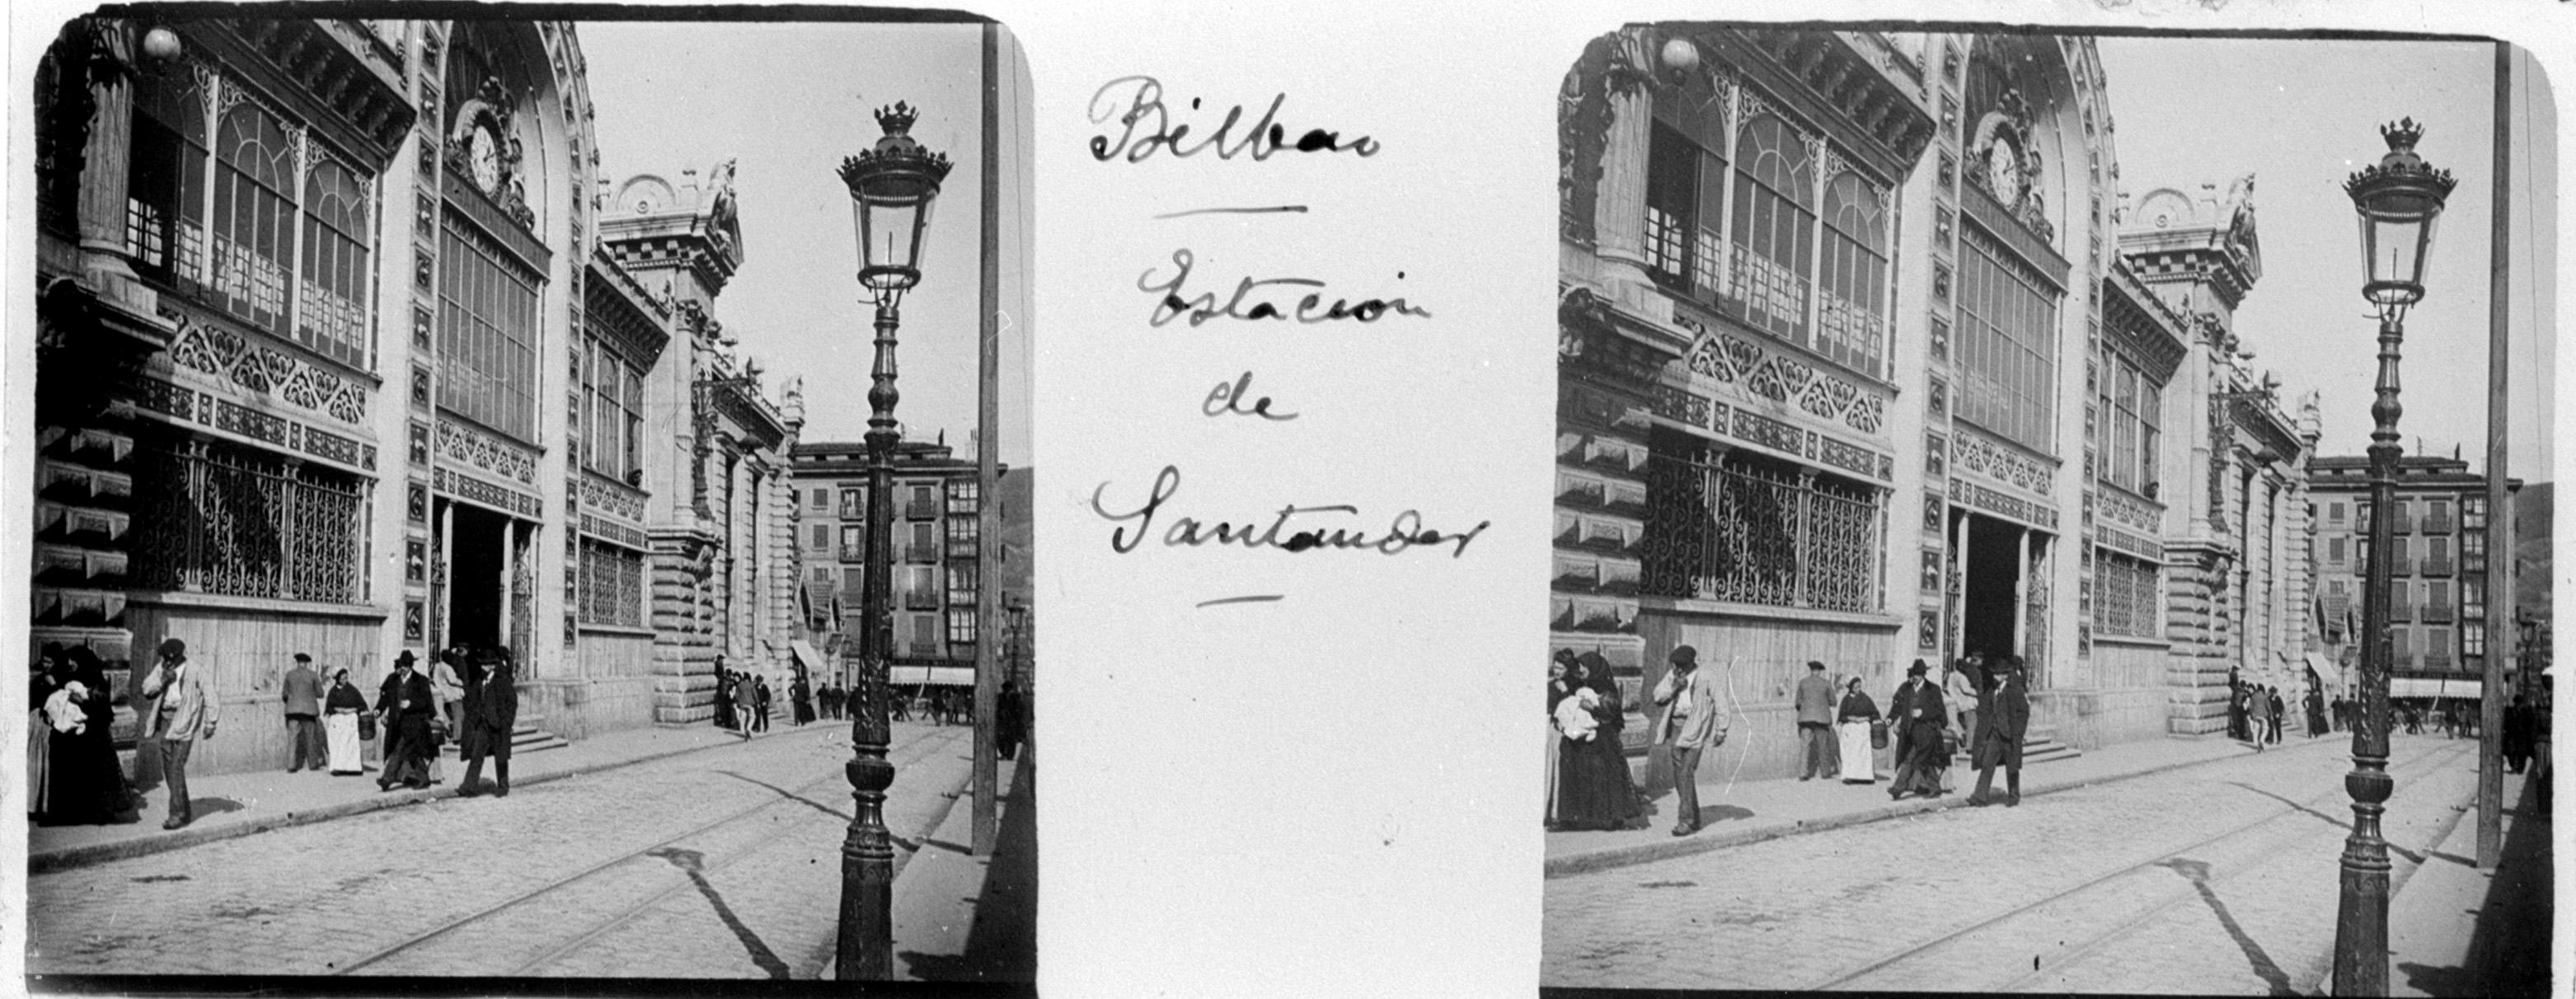 Bilbao
Estación
de
Santander